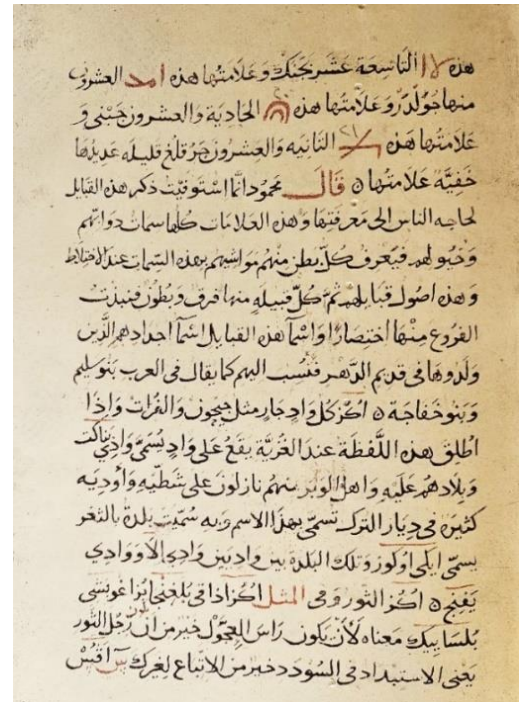 هذه التاسعة عشر بجنك وعلامتها هذه العشرون
منها جولدر وعلامتها هذه الحادية والعشرون جبنى و
علامتها هذه ٢١ الثانيه والعشرون جرقلغ قليله عديدها
خفية علامتها ۞ قال محمود انما استوفيت ذكر هذه القبايل
لحاجه الناس الى معرفتها وهذه العلامات كلها سمات دوابهم
وخيولهم فيعرف كل بطن منهم مواشيهم بهذه السمات عند الاختلاط
وهذه اصول قبايلهم ثم كل قبيله منها فرق وبطون فنبذت
الفروع منها اختصارا واسمآ هذه القبايل اسمآ اجدادهم الذين
ولدوها فى قديم الدهر فنسب اليهم كما يقال فى العرب بنو سليم
وبنو خفاجة ۞ اكز كل واد جار مثل جيحون والفرات واذا
اطلق هذه اللفظة عند الغزية يقع على واد يسمى وادى بناكت
وبلادهم عليه واهل الوبر منهم نازلون على شطيه واوديه
كثيرة فى ديار الترك تسمى بهذا الاسم وبه سميت بلدة بالثغر
يسمى ايكى اوكوز وتلك البلدة بين واديين وادى الا ووادى
يفنج ۞ اكز الثور وفى المثل اكز اذاقى بلغنجا بزاغو بشى
بلسا ييك معناه لأن يكون راس العجول خير من ان يكون رجل الثور
يعنى الاستبداد فى السودد خير من الاتباع لغيرك س اقس